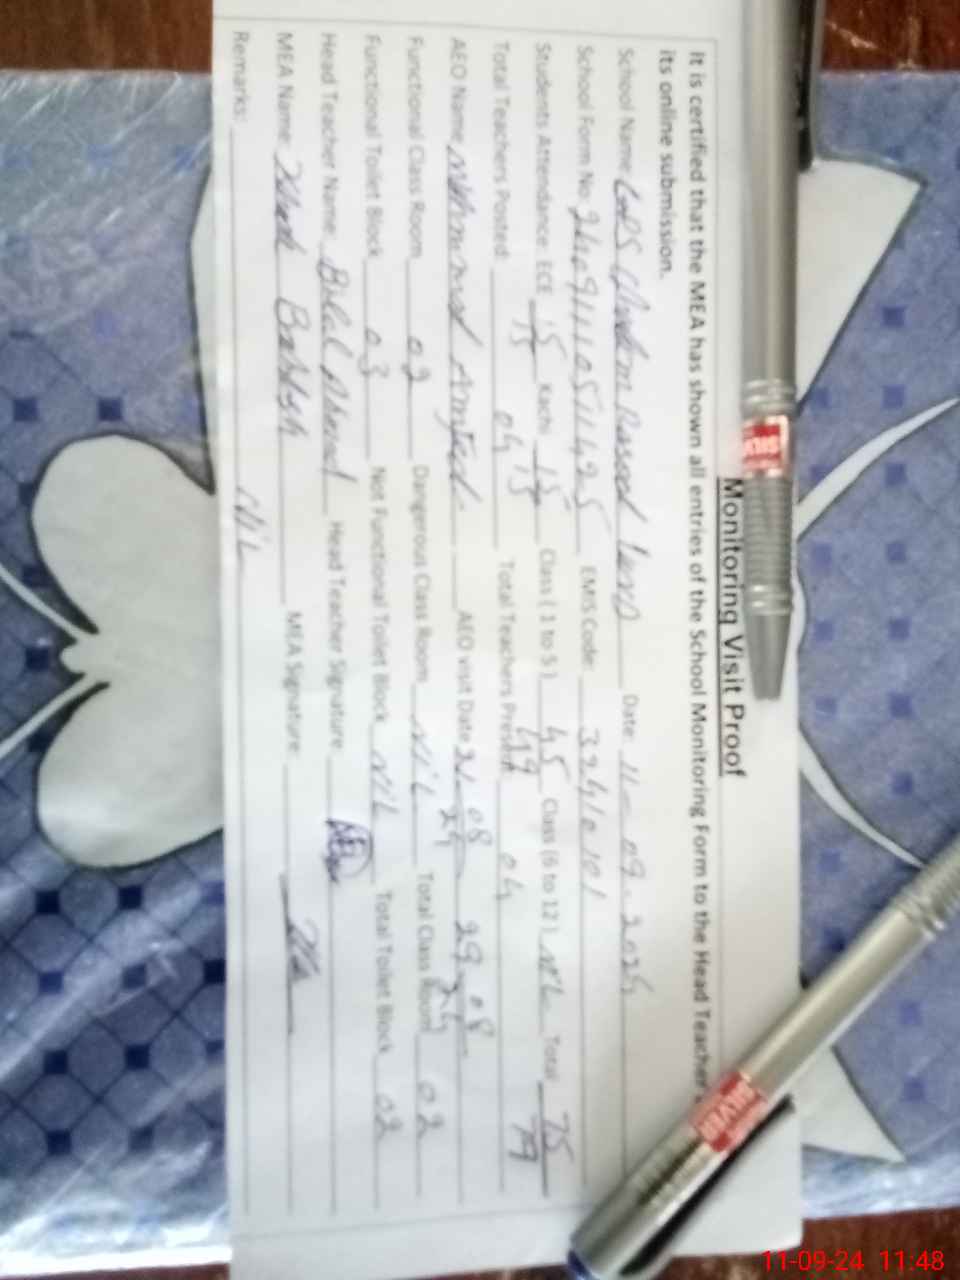 Monitoring Visit Proof
It is certified that the MEA has shown all entries of the School Monitoring Form to the Head Teacher
its online submission.
School Name Date: 11-09-2024
School Form No. EMIS Code: 32410101
Students Attendance: ECE 15/15 Kachi 15/15 Class (1 to 5) 45/49 Class (6 to 12) NIL Total 75/79
Total Teachers Posted: 04 Total Teachers Present 04
AEO Name: AEO visit Date 08 24 29-08 24
Functional Class Room 02 Dangerous Class Room NIL Total Class Room 02
Functional Toilet Block 03 Not Functional Toilet Block NIL Total Toilet Block 02
Head Teacher Name: Bilal Ahmad Head Teacher Signature
MEA Name: MEA Signature:
Remarks: NIL
SILVER
SILVER
11-09-24 11:48